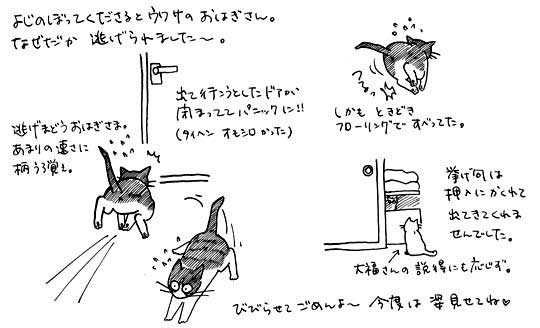 よじのぼってくださるとウワサの おはぎさん。
なぜだか 逃げられました〜。
出て行こうとしたドアが
閉まってて パニックに!!
(タイヘン オモシロかった)
逃げまどうおはぎさま。
あまりの速さに
柄うろ覚え。
つるっ
しかも ときどき
フローリングで すべってた。
挙げ句は
押入にかくれて
出てきてくれま
せんでした。
大福さんの 説得にも応じず。
びびらせて ごめんよ〜 今度は 姿見せてね♡